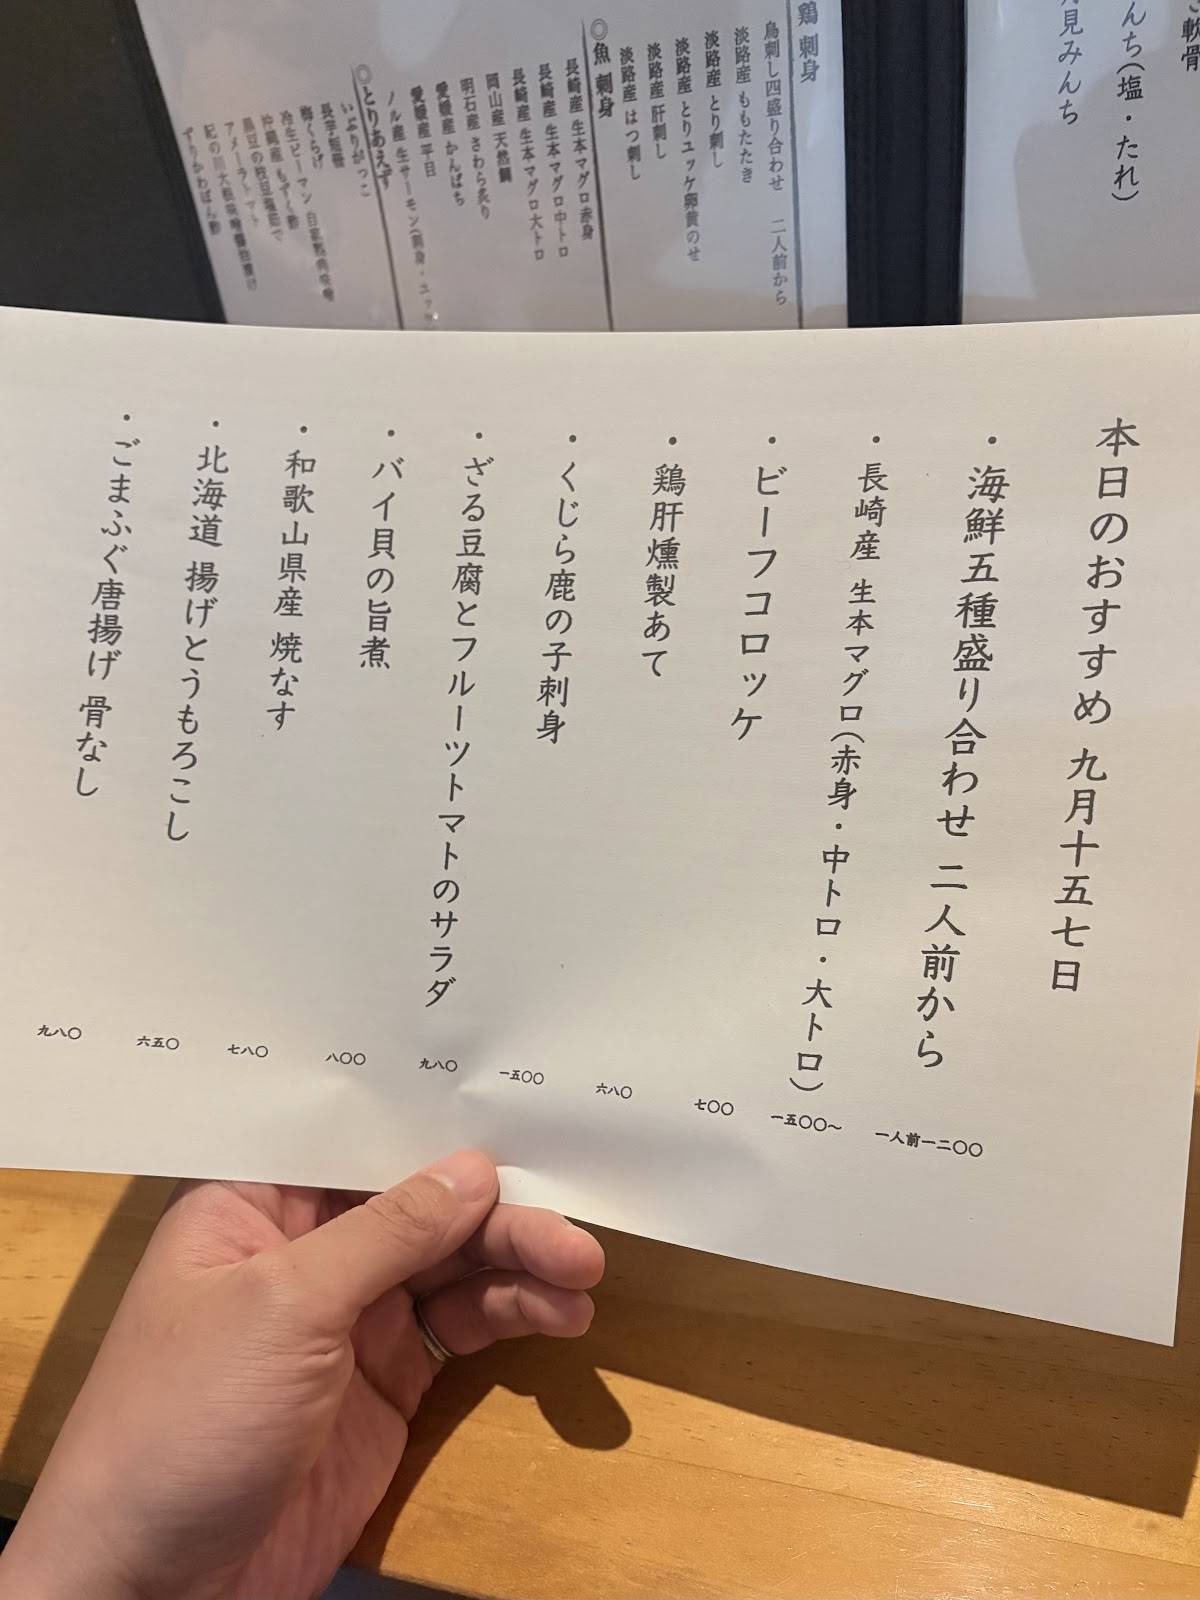 本日のおすすめ 九月十五七日
・海鮮五種盛り合わせ 二人前から
一人前一二〇〇
・長崎産 生本マグロ(赤身・中トロ・大トロ)
一五〇〇~
・ビーフコロッケ
七〇〇
・鶏肝燻製あて
六八〇
・くじら鹿の子刺身
一五〇〇
・ざる豆腐とフルーツトマトのサラダ
九八〇
・バイ貝の旨煮
八〇〇
・和歌山県産 焼なす
七八〇
・北海道 揚げとうもろこし
六五〇
・ごまふぐ唐揚げ 骨なし
九八〇
軟骨
んち(塩・たれ)
月見みんち
鶏 刺身
鳥刺し四盛り合わせ 二人前から
淡路産 ももたたき
淡路産 とり刺し
淡路産 とりユッケ卵黄のせ
淡路産 肝刺し
淡路産 はつ刺し
◎魚 刺身
長崎産 生本マグロ赤身
長崎産 生本マグロ中トロ
長崎産 生本マグロ大トロ
岡山産 天然鯛
明石産 さわら炙り
愛媛産 かんぱち
愛媛産 平目
ノル産 生サーモン(刺身・ユッケ
◎とりあえず
いぶりがっこ
長芋短冊
梅くらげ
冷生ピーマン 自家製肉味噌
沖縄産 もずく酢
黒豆の枝豆塩茹で
アメーラトマト
紀の川大根味噌醤油漬け
とりかわぽん酢